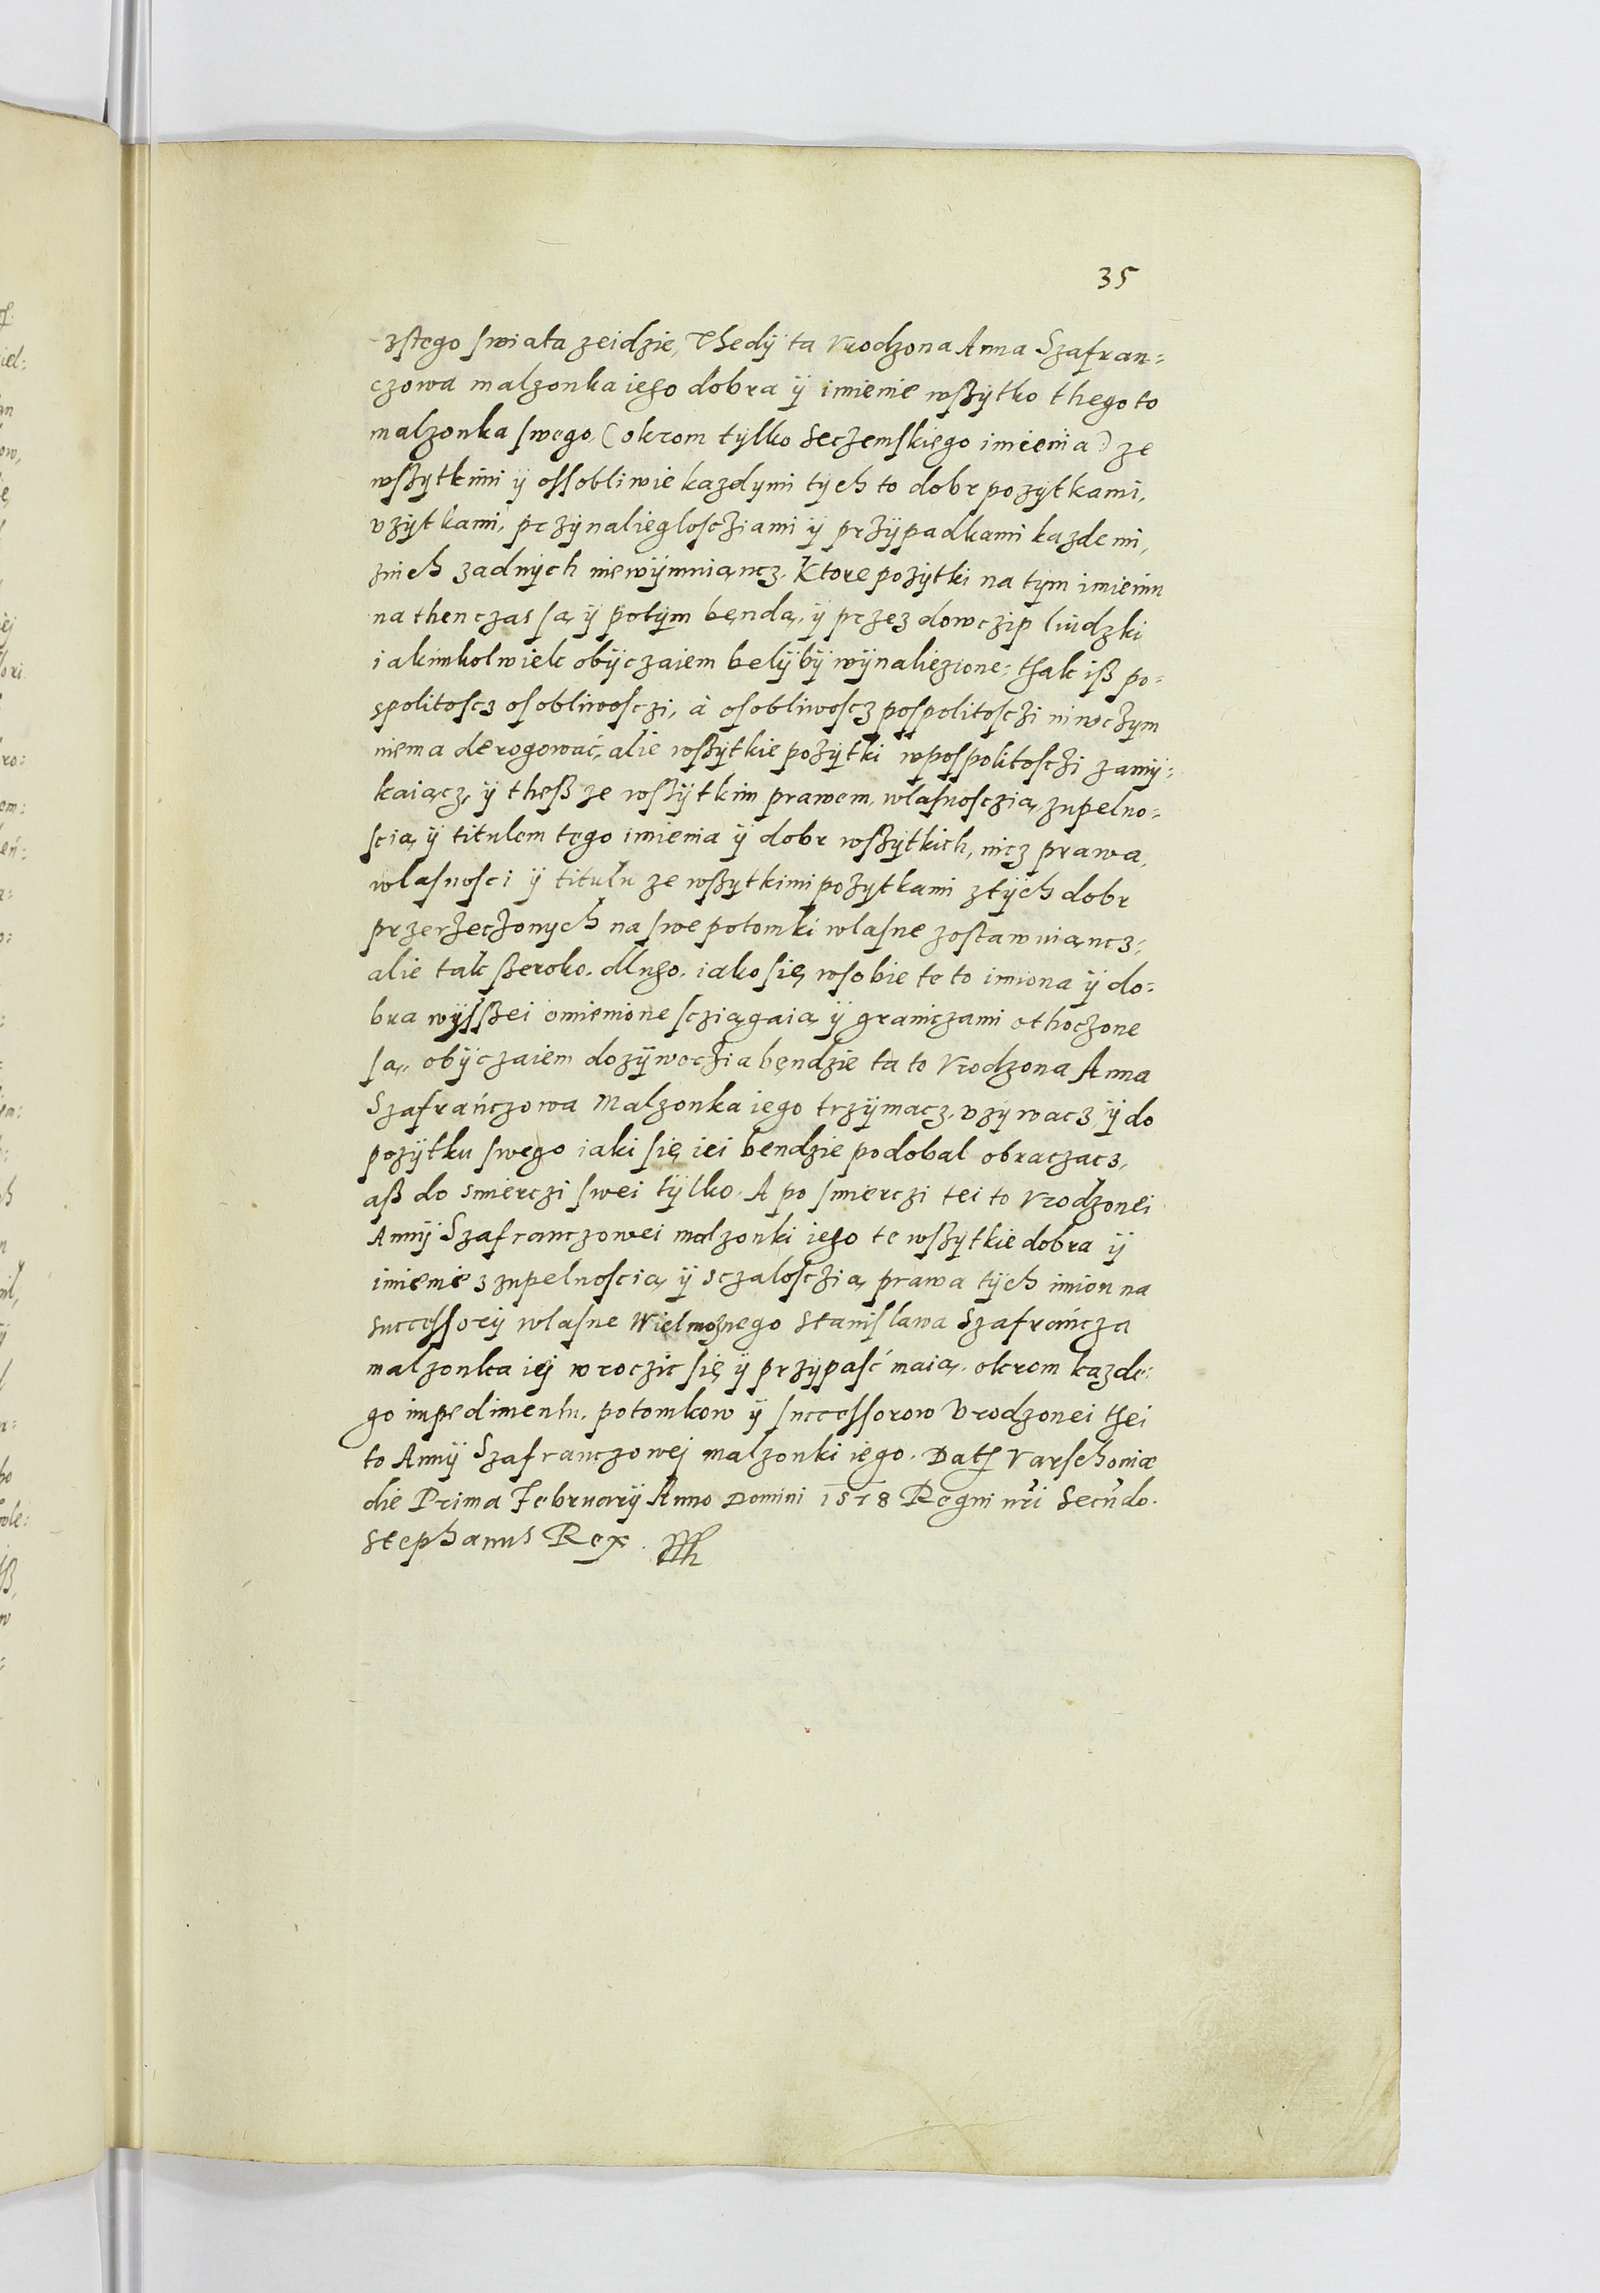 35
zstego swiata zeidzie, Thedÿ ta Vrodzona Anna Szafran=
czowa malzonka iego dobra ÿ imienie wszytko thego to
malzonka swego, (okrom tÿlko Seczemskiego imienia) ze
wszytkimi ÿ ossobliwie kazdymi tych to dobr pozytkami,
vzÿtkami, przÿnaliegloscziami ÿ przÿpadkami kazdemi,
znich zadnÿch niewÿmuiancz. Ktore pożytki na tÿm imieniu
na then czas są ÿ potÿm będą, ÿ przez dowczip liudzki
iakimkolwiek obÿczaiem belÿbÿ wÿnaliezione: thak isz po=
spolitoscz osobliwosczi, à osobliwoscz pospolitosczi niwczym
niema derogować, alie wszÿtkie pożÿtki wpospolitosczi zamÿ=
kaiącz, ÿ thesz ze wszÿtkim prawem, wlasnosczią, zupelno=
scią, ÿ titulem tego imienia ÿ dobr wszytkich, nicz prawa,
wlasnosci ÿ titulu ze wszytkimi pożytkami ztÿch dobr
przerzeczonych na swe potomki wlasne zostawuiancz,
alie tak szeroko, dlugo, iako się wsobie te to imiona ÿ do=
bra wÿsszei omienione scziągaią ÿ graniczami othoczone
są, obÿczaiem dozÿwoczia bendzie ta to Vrodzona Anna
Szafrańczowa Malzonka iego trzÿmacz, vzÿwacz, ÿ do
pozÿtku swego iaki się iei bendzie podobal obraczacz,
asz do smierczi swei tÿlko. A po smierczi tei to Vrodzonei
Annÿ Szafranczowei malzonki iego te wszytkie dobra ÿ
imienie z zupelnoscią, ÿ sczalosczią, prawa tÿch imion na
successorÿ wlasne Wielmożnego Stanislawa Szafrańcza
malzonka iej wroczic się ÿ przÿpaść maią, okrom kazde=
go impedimentu, potomkow ÿ successorow Vrodzonei thei
to Annÿ Szafranczowej malzonki iego. Dat. Varschoviæ
die Prima Februarÿ Anno Domini 1578 Regni nri Secundo.
Stephanus Rex.